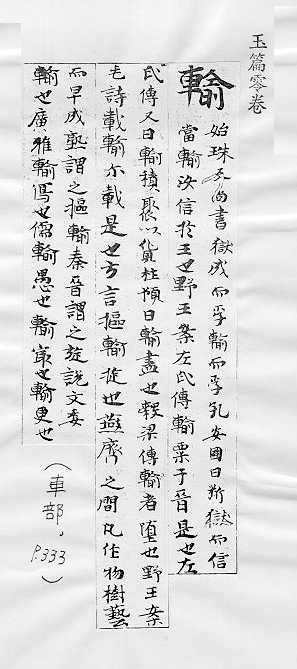 玉篇零卷
輸 始珠反尚書獄成而孚輸而孚孔安國曰斷獄而信
當輸汝信於王也野王案左氏傳輸粟于晉是也左
氏傳又曰輸積聚以貨杜預曰輸盡也穀梁傳輸者墮也野王案
毛詩載輸尓載是也方言摳輸㨒也燕齊之間凡作物樹藝
而早成熟謂之摳輸秦晉謂之旋說文委
輸也廣雅輸寫也儒輸愚也輸寂也輸更也
(車部,
P.333)